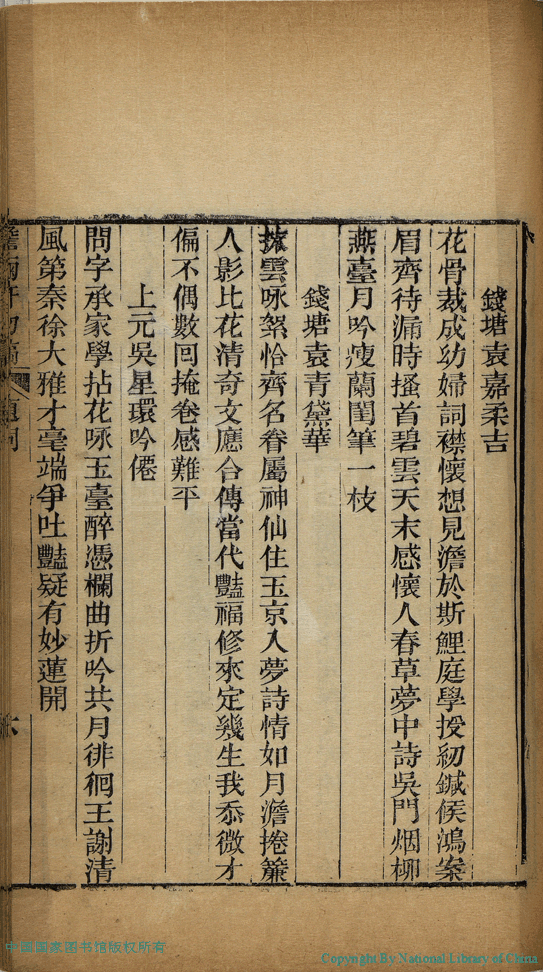 錢塘袁嘉柔吉
花骨裁成幼婦詞襟懷想見澹於斯鯉庭學授紉鍼候鴻案
眉齊待漏時搔首碧雲天末感懷人春草夢中詩吳門烟柳
燕臺月吟瘦蘭閨筆一枝
錢塘袁青黛華
撚雲咏絮恰齊名眷屬神仙住玉京入夢詩情如月澹捲簾
人影比花清奇文應合傳當代豔福修來定幾生我忝微才
偏不偶數回掩卷感難平
上元吳星環吟僊
問字承家學拈花咏玉臺醉憑欄曲折吟共月徘徊王謝清
風第秦徐大雅才毫端爭吐豔疑有妙蓮開
題詞
六
中国国家图书馆版权所有
Copyright By National Library of China